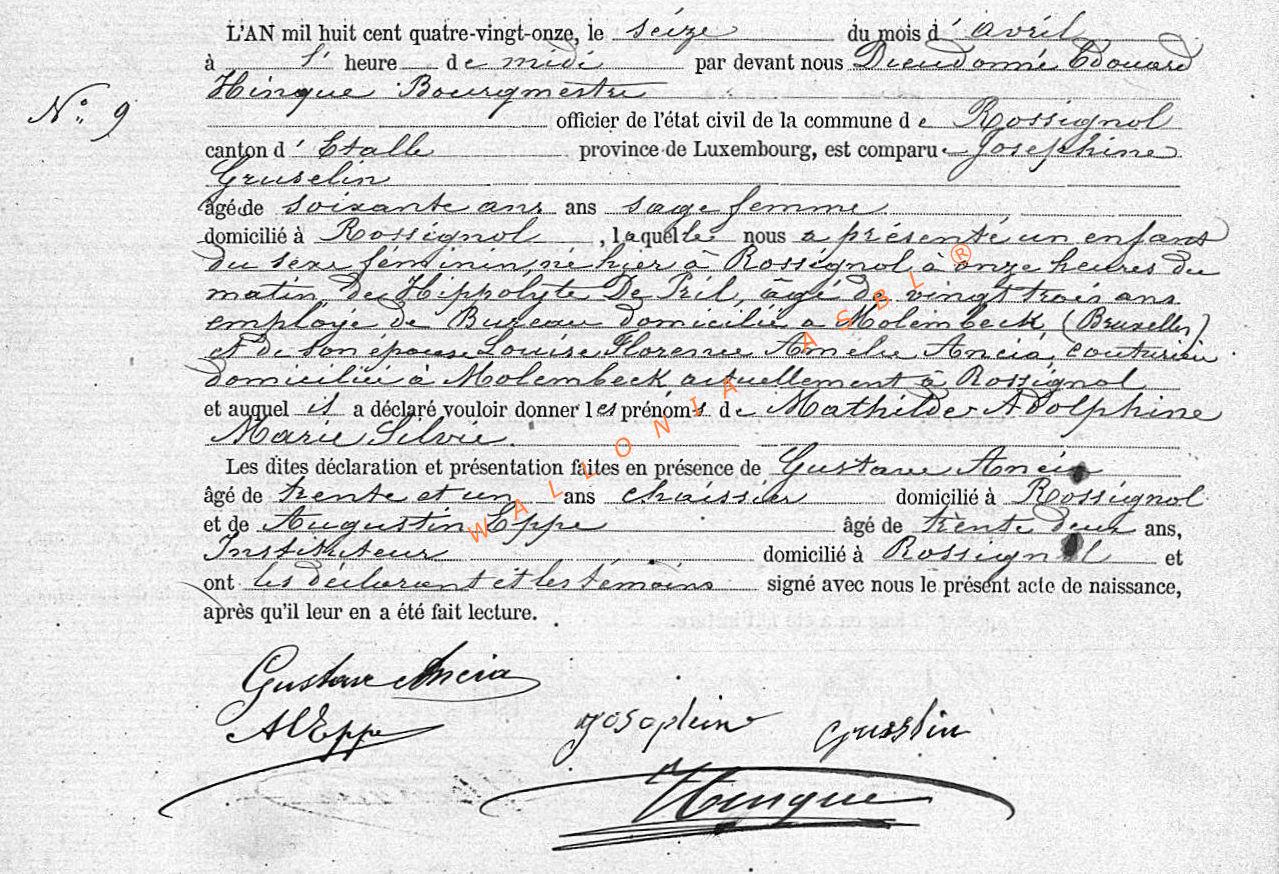 L'AN mil huit cent quatre-vingt-onze, le seize du mois d' avril
à l' heure de midi par devant nous Dieudonné Edouard
Hinque Bourgmestre
N° 9
officier de l'état civil de la commune de Rossignol
canton d' Etalle province de Luxembourg, est comparue Josephine
Gruselin
âgé de soixante ans ans sage femme
domicilié à Rossignol, laquelle nous a présenté un enfant
du sexe féminin, né hier à Rossignol, à onze heures du
matin, de Hippolyte De Pril, âgé de vingt trois ans
employé de Bureau domicilié à Molembeck (Bruxelles)
et de son épouse Louise Florence Amélie Ancia, couturière
domiciliée à Molembeck actuellement à Rossignol
et auquel il a déclaré vouloir donner les prénoms de Mathilde Adolphine
Marie Silvie.
Les dites déclaration et présentation faites en présence de Gustave Ancia
âgé de trente et un ans domicilié à Rossignol
et de Augustin Eppe âgé de trente deux ans,
Instituteur domicilié à Rossignol et
ont les déclarant et les témoins signé avec nous le présent acte de naissance,
après qu'il leur en a été fait lecture.
Gustave Ancia
AEppe Gruslin
Hinque
WALLONIA ASBL ®